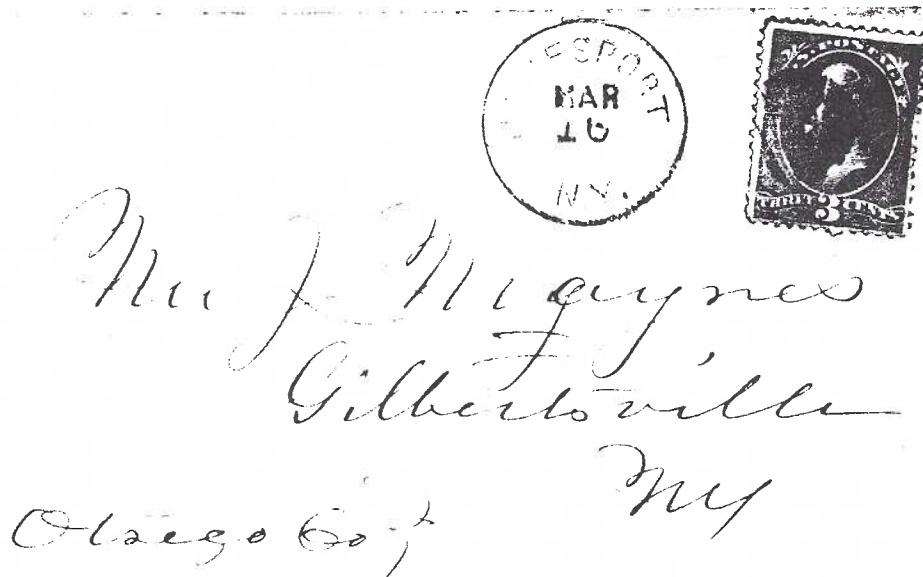 ESPORT
MAR
N.Y.
U.S. POSTAGE
THREE 3 CENTS
Mr J Maynes
Gilbertsville
NY
Otsego Co